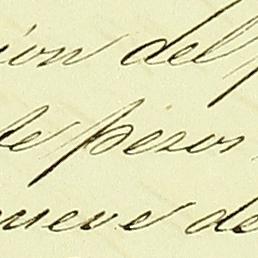 ion del p
te pesos
nueve de